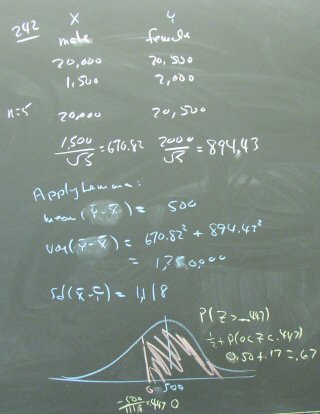 242 X Y
male female
20,000 20,500
1,500 2,000
n=5 20,000 20,500
1,500/√5 = 670.82 2000/√5 = 894.43
Apply Lemma:
mean (Ȳ-X̄) = 500
var(Ȳ-X̄) = 670.82² + 894.43²
= 1,250,000
sd(Ȳ-X̄) = 1,118
P(Z>-.447)
½+P(0<Z<.447)
0.50+.17=.67
0 500
-500/1118 = -.447 0